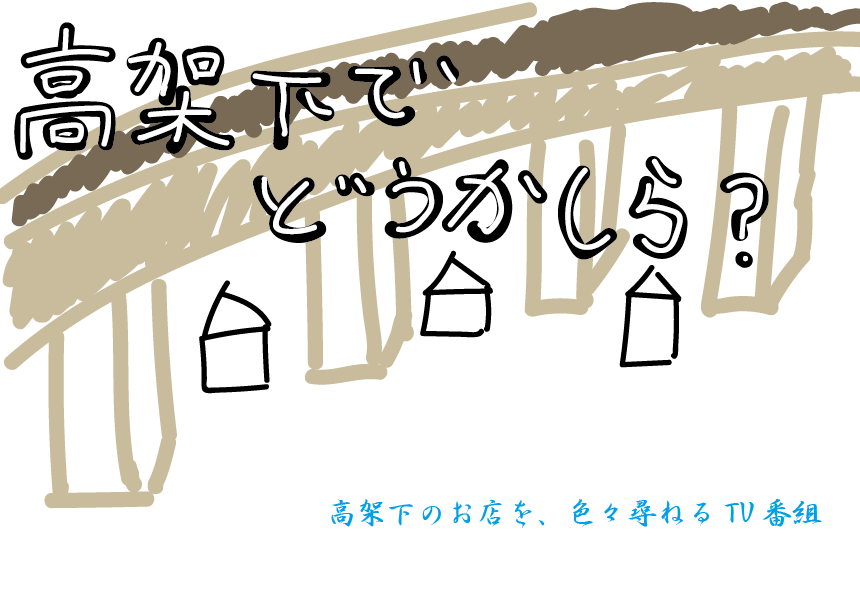 高架下で
どうかしら?
高架下のお店を、色々尋ねるTV番組